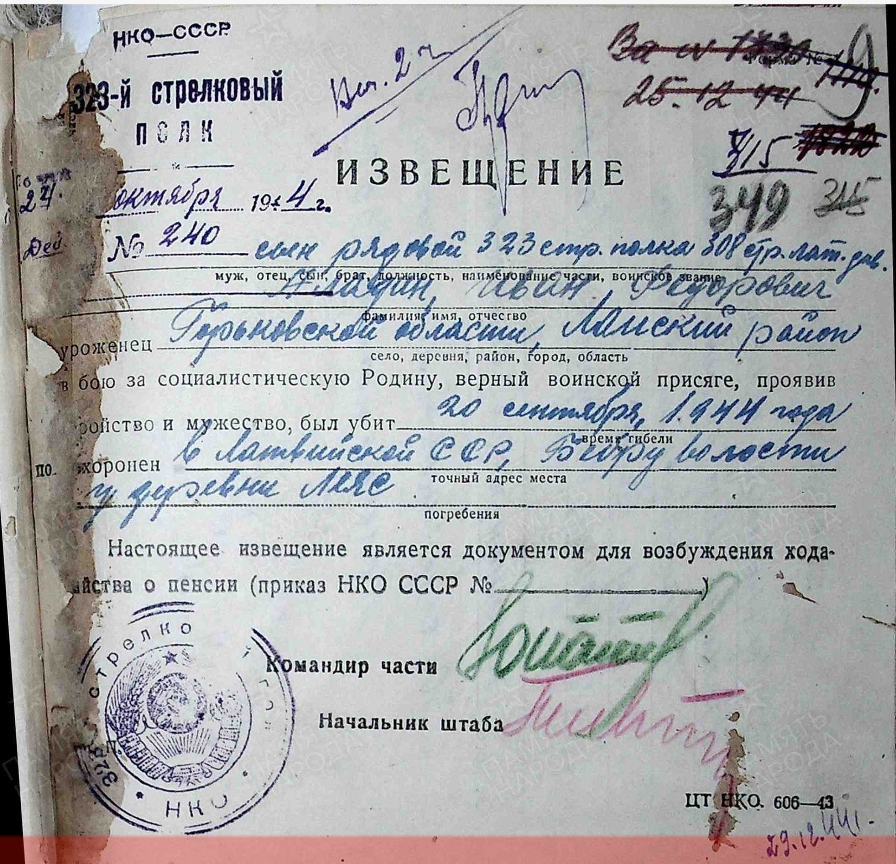 НКО—СССР
323-й стрелковый
ПОЛК
25.12.44
715
ИЗВЕЩЕНИЕ
349 345
24. октября 1944 г.
№ 240 сын рядовой 323 стр. полка 308 стр. лат. див.
муж, отец, сын, брат, должность, наименование части, воинское звание
Иван Федорович
фамилия, имя, отчество
уроженец Горьковской области, район
село, деревня, район, город, область
в бою за социалистическую Родину, верный воинской присяге, проявив
ройство и мужество, был убит 20 сентября, 1944 года
время гибели
по хоронен в Латвийской ССР, волости
точный адрес места
у деревни Леяс
погребения
Настоящее извещение является документом для возбуждения хода-
йства о пенсии (приказ НКО СССР № )
Командир части
Начальник штаба
323 стрелко
НКО
ЦТ НКО. 606—43
29.12.44г.